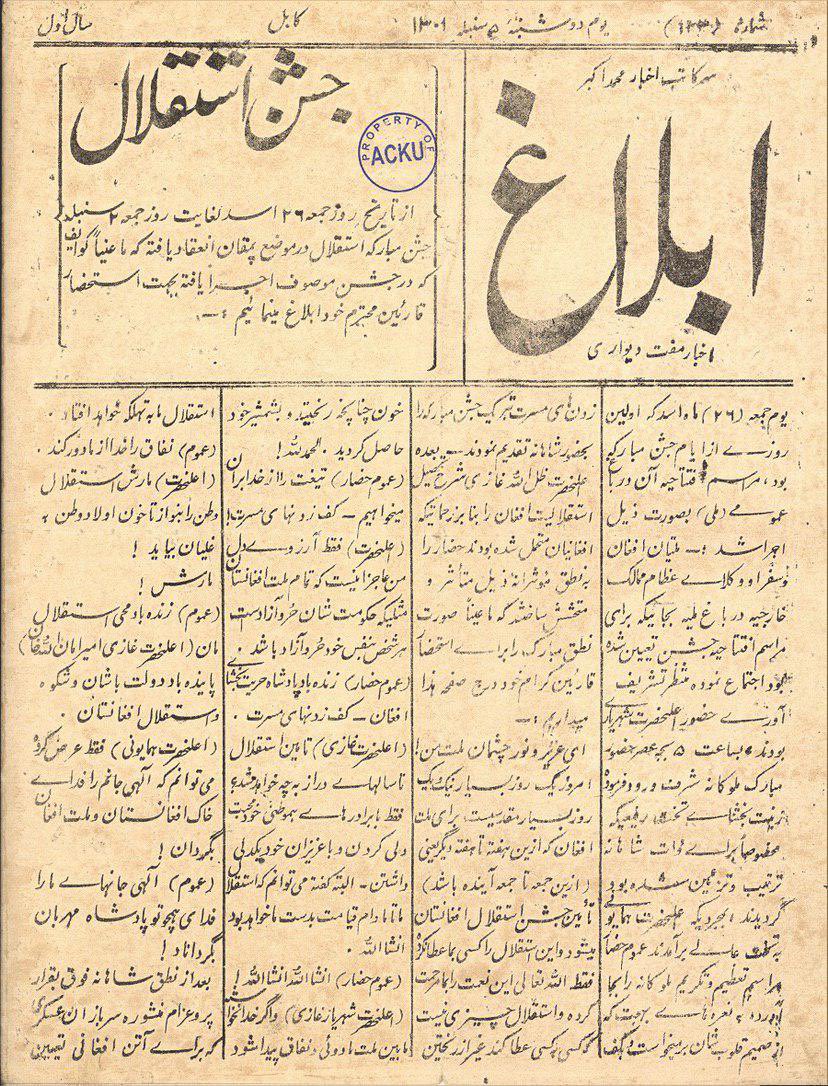 شماره (۱۳) یوم دوشنبه ۵ سنبله ۱۳۰۱
کابل
سال اول
سر کاتب اخبار محمد اکبر
ابلاغ
اخبار مفت دیواری
جشن استقلال
PROPERTY OF
ACKU
از تاریخ روز جمعه ۲۶ اسد لغایت روز جمعه ۲ سنبله
جشن مبارکه استقلال در موضع پمقان انعقاد یافته که ما عنیاً کوایف
که در جشن موصوف اجرا یافته بجهت استحضار
قارئین محترم خود ابلاغ مینمائیم :—
یوم جمعه (۲۶) ماه اسد که اولین
روزے از ایام جشن مبارکه
بود، مراسم افتتاحیه آن در باغ
عمومے (ملی) بصورت ذیل
اجرا شد :— ملتیان افغان
وسفرا و وکلاے عظام ممالک
خارجیه در باغ ملیه بجائیکه برای
مراسم افتتاحیه جشن تعیین شده
بود اجتماع نموده منتظر تشریف
آورے حضور اعلیحضرت شهریارے
بودند، بساعت ۵ بجه عصر حضور
مبارک ملوکانه شرف ورود فرموده
زینت بخشاے تخت رفیعیکه
مخصوصاً براے ذات شاهانه
ترتیب و تزئین شده بود
گردیدند، بمجردیکه اعلیحضرت همایونے
به تخت عالے برآمدند عموم حضار
مراسم تعظیم و تکریم ملوکانه را بجا
آورده به نعره هاے بهجت که
از صمیم قلوب شان برمیخاست و کف
زدن های مسرت تبریک جشن مبارکه را
بحضور شاهانه تقدیم نمودند — بعده
اعلیحضرت ظل الله غازی شرح تحصیل
استقلالیت افغان را بنا بزحماتیکه
افغانیان متحمل شده بودند حضار را
به نطق موثرانه ذیل متأثر و
متحسس ساختند که ما عیناً صورت
نطق مبارک را برای استحضار
قارئین کرام خود درج صفحه هذا
میداریم :—
ای عزیز و نور چشمان ملت من!
امروز یک روز بسیار نیک و یک
روز بسیار مقدسیست برای ملت
افغان که ازین هفته تا هفته دیگر یعنی
(ازین جمعه تا جمعه آینده باشد)
تأمین جشن استقلال افغانستان
میشود و این استقلال را کسی بما عطا نکرده
فقط الله تعالی این نعمت را بما مرحمت
کرده و استقلال چیزی نیست
که کسی بکسی عطا کند غیر از ریختن
خون چنانچه ریختید و بشمشیر خود
حاصل کردید. الحمدلله!
(عموم حضار) تیغت را از خدا بران
میخواهیم — کف زدنهای مسرت!
(اعلیحضرت) فقط آرزوے دل
من عاجز اینیست که تمام ملت افغانستان
مثلیکه حکومت شان حُر و آزاد است
هر شخص بنفس خود حُر و آزاد باشد.
(عموم حضار) زنده باد پادشاه حریت بخشاے
افغان — کف زدنهای مسرت.
(اعلیحضرت غازی) تأمین استقلال
تا سالهاے دراز به چه خواهد شد؟
فقط با برادرهاے هموطنی خود محبت
دلی کردن و با عزیزان خود یکدلی
داشتن — البته گفته می توانم که استقلال
ما تا مادام قیامت بدست ما خواهد بود
انشاالله.
(عموم حضار) انشاالله انشاالله!
(اعلیحضرت شهریار غازی) و اگر خدا نخواسته
مابین ملت ما دوئی و نفاق پیدا شود
استقلال ما به تهلکه خواهد افتاد.
(عموم) نفاق را خدا از ما دور کند.
(اعلیحضرت) مارش استقلال
وطن را بنواز تا خون اولاد وطن به
غلیان بیاید!
مارش!
(عموم) زنده باد محی استقلال
مان (اعلیحضرت غازی امیر امان الله خان)
پاینده باد دولت با شان و شکوه
و استقلال افغانستان.
(اعلیحضرت همایونی) فقط عرض کرده
می توانم که الهی جانم را فداے
خاک افغانستان و ملت افغان
بگردان!
(عموم) الهی جانهاے ما را
فدای همچو تو پادشاه مهربان
بگرداناد!
بعد از نطق شاهانه فوق بقرار
پروغرام منشوره سربازان عسکری
که براے آتن افغانی تعیین